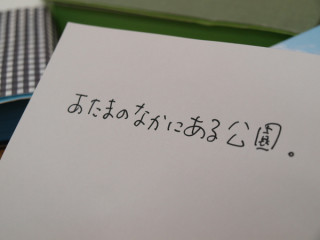 あたまのなかにある公園。